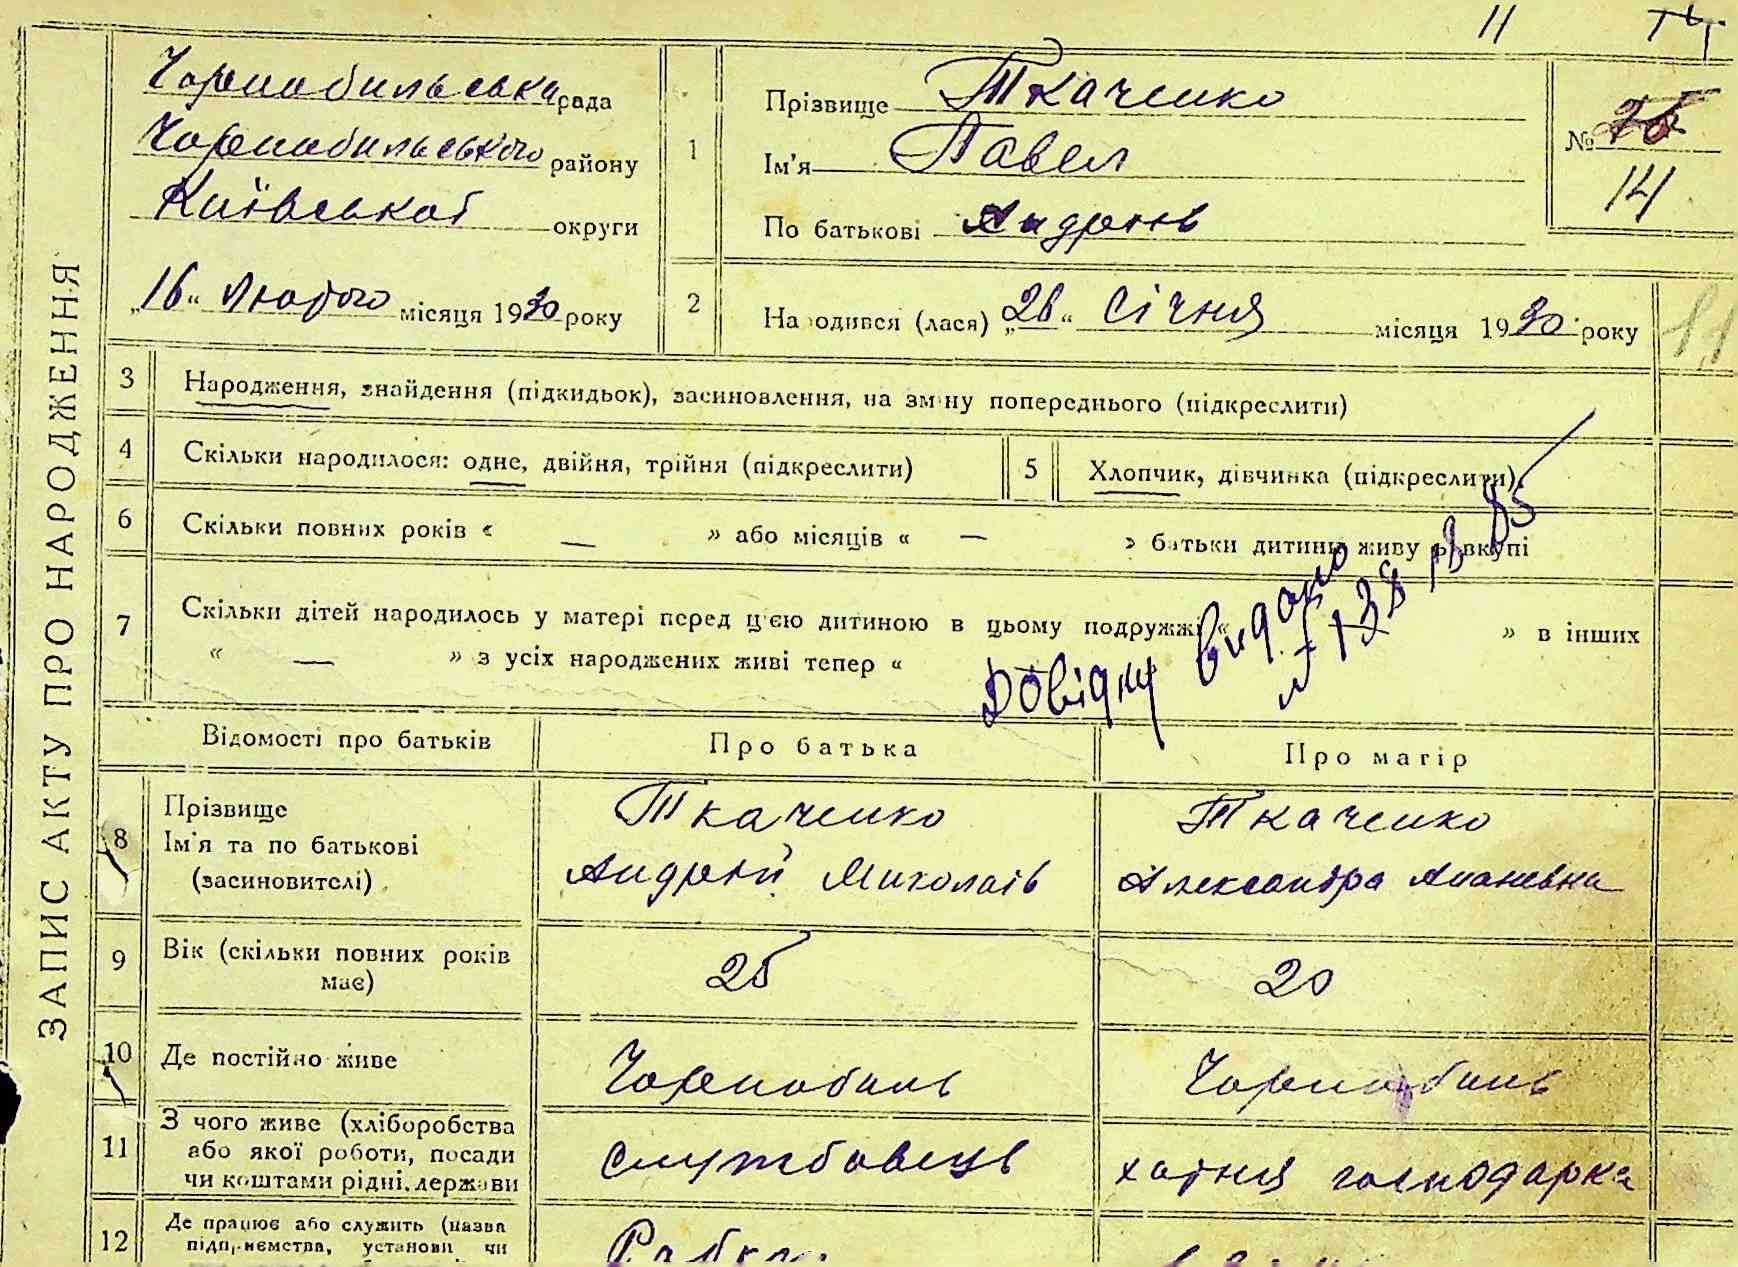 11
ЗАПИС АКТУ ПРО НАРОДЖЕННЯ
Чорнобильська рада
Чорнобильського району
Київської округи
„16“ Лютого місяця 1930 року
1
Прізвище Ткаченко
Ім'я Павел
По батькові Андріїв
№ 26
14
2
На одився (лася) „26“ Січня місяця 1930 року
11
3 Народження, знайдення (підкидьок), засиновлення, на зміну попереднього (підкреслити)
4 Скільки народилося: одне, двійня, трійня (підкреслити)
5 Хлопчик, дівчинка (підкреслити).
6 Скільки повних років « — » або місяців « — » батьки дитини живуть вкупі
7 Скільки дітей народилось у матері перед цією дитиною в цьому подружжі « » в інших
« — » з усіх народжених живі тепер «
Довідку видано
№ 138 13 85
Відомості про батьків Про батька Про матір
8 Прізвище Ткаченко Ткаченко
Ім'я та по батькові Андрій Миколаїв Александра Ананевна
(засиновителі)
9 Вік (скільки повних років має) 25 20
10 Де постійно живе Чорнобиль Чорнобиль
11 З чого живе (хліборобства
або якої роботи, посади службовець хатня господарка
чи коштами рідні, держави
12 Де працює або служить (назва
підприємства, установи чи